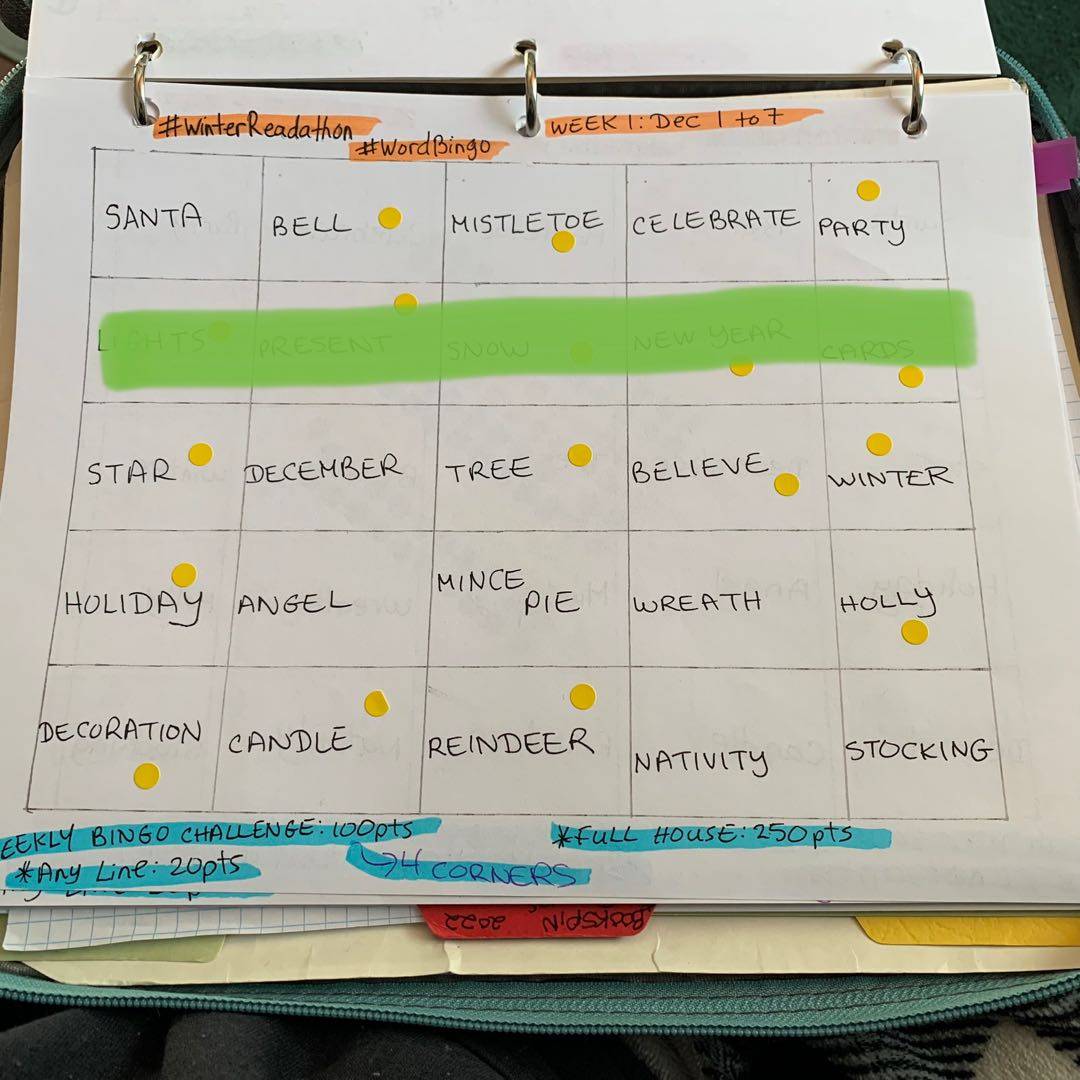 #WinterReadathon
WEEK 1: Dec 1 to 7
#WordBingo
SANTA BELL MISTLETOE CELEBRATE PARTY
LIGHTS PRESENT SNOW NEW YEAR CARDS
STAR DECEMBER TREE BELIEVE WINTER
HOLIDAY ANGEL MINCE PIE WREATH HOLLY
DECORATION CANDLE REINDEER NATIVITY STOCKING
EEKLY BINGO CHALLENGE: 100pts
*FULL HOUSE: 250pts
*Any Line: 20pts
4 CORNERS
BOOKSPIN
2022